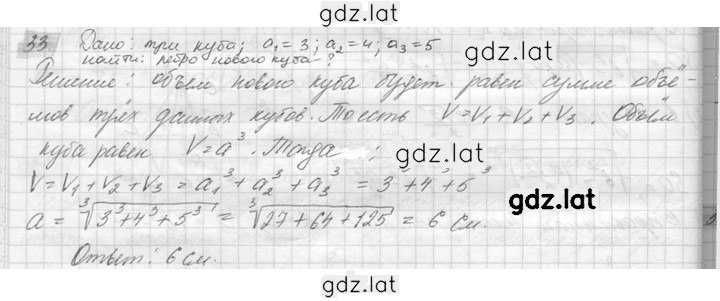 gdz.lat
33. Дано: три куба; a₁ = 3; a₂ = 4; a₃ = 5
найти: ребро нового куба?
Решение: объём нового куба будет равен сумме объё-
мов трёх данных кубов. То есть V = V₁ + V₂ + V₃. Объём
куба равен V = a³. Тогда:
gdz.lat
V = V₁ + V₂ + V₃ = a₁³ + a₂³ + a₃³ = 3³ + 4³ + 5³
a = ∛(3³ + 4³ + 5³) = ∛(27 + 64 + 125) = 6 см.
Ответ: 6 см.
gdz.lat